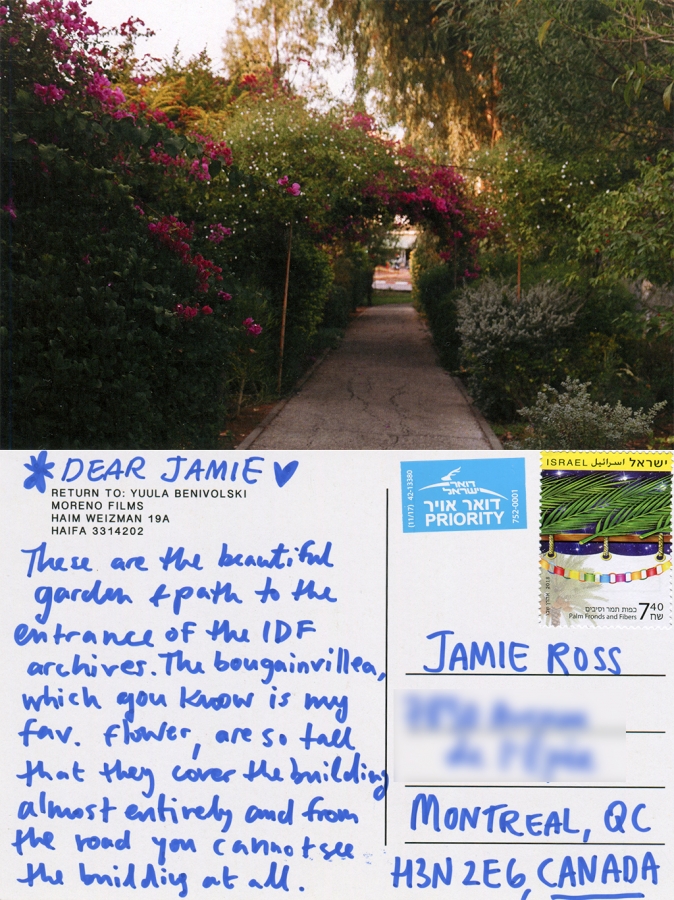 DEAR JAMIE
RETURN TO: YUULA BENIVOLSKI
MORENO FILMS
HAIM WEIZMAN 19A
HAIFA 3314202
These are the beautiful
garden + path to the
entrance of the IDF
archives. The bougainvillea,
which you know is my
fav. flower, are so tall
that they cover the building
almost entirely and from
the road you cannot see
the building at all.
(11/17) 42-13380
דואר
ישראל
דואר אויר
PRIORITY
752-0001
ISRAEL اسرائيل ישראל
כפות תמר וסיבים
Palm Fronds and Fibers
7.40
ש״ח
JAMIE ROSS
MONTREAL, QC
H3N 2E6, CANADA